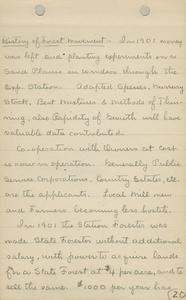 History of Forest Movement - In 1901 money
was left and planting experiments on a
Sand Plains in Windsor through the
Exp. Station. Adapted Species, Nursery
Stock, Best Mixtures & Methods of Thin-
ning, also Rapidity of Growth will have
valuable data contributed.
Co-operation with Owners at cost
is now in operation. Generally Public
Service Corporations, Country Estates, etc.
are the applicants. Local Mill men
and Farmers becoming less hostile.
In 1901 the Station Forester was
made State Forester without additional
salary, with power to acquire lands
for a State Forest at $4 per acre, and to
sell the same. $1000 per year has
20